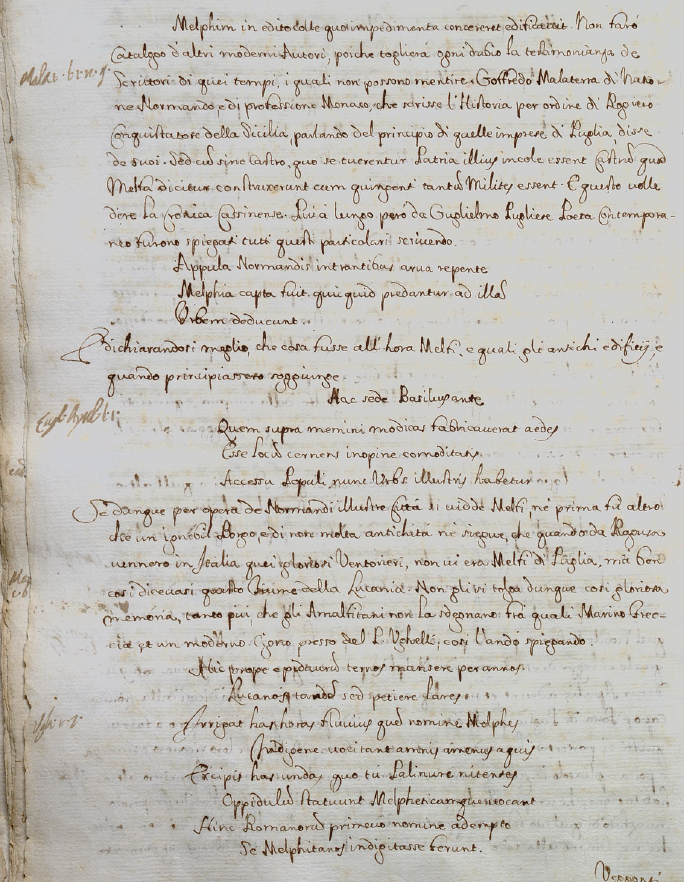 Melphim in edito colle quo impedimenta conceret edificavit. Non faró
Catalogo d'altri moderni Autori, poiche toglierá ogni dubio la testimonianza de
Scrittori di quei tempi, i quali non possono mentire. Goffredo Malaterra di Natio-
ne Normando, e di professione Monaco, che scrisse l'Historia per ordine di Rogiero
Conquistatore della Sicilia, parlando del principio di quelle imprese di Puglia disse
de suoi. sed cum sine Castro, quo se tuerentur Patria illius incole essent Castrum quod
Melfa dicitur construxerunt cum quingenti tantum Milites essent. E questo volle
dire la Cronica Cassinense. Piú a lungo peró da Guglielmo Pugliese Poeta Contempora-
neo furono spiegati tutti questi particolari scrivendo.
Appula Normandis intrantibus arva repente
Melphia capta fuit, quicquid predantur ad illam
Urbem deducunt.
E dichiarandosi meglio, che cosa fusse all'hora Melfi, e quali gli antichi edificij, e
quando principiassero soggiunge.
Hac sede Basilius ante
Quem supra memini modicas fabricaverat aedes
Esse locum cernens inopine comoditatis
Accessu Populi nunc Urbs illustris habetur
Se dunque per opera de Normandi illustre Cittá si vidde Melfi, né prima fú altro
che un ignobil Borgo, e di non molta antichitá né siegue, che quando da Ragusa
vennero in Italia quei gloriosi Venturieri, non vi era Melfi di Puglia, má ben
cosi dicevasi questo fiume della Lucania. Non gli si tolga dunque cosi gloriosa
memoria, tanto piú che gli Amalfitani non la sdegnano frá quali Marino Frec-
cia et un moderno presso del P. Ughelli, cosi l'andó spiegando.
Hic prope epidaurum terras mansere per annos
Lucanos tandem sed petiere lares
Irrigat has horas fluvius quem nomine Melphes
Indigene vocitant amnis amenus aquis
Ercipis has undas quo tu Palinure nitentes
Oppidulum statuunt Melpheticamque vocant
Hinc Romanorum primevo nomine adempto
Se Melphitanos indigitasse ferunt.